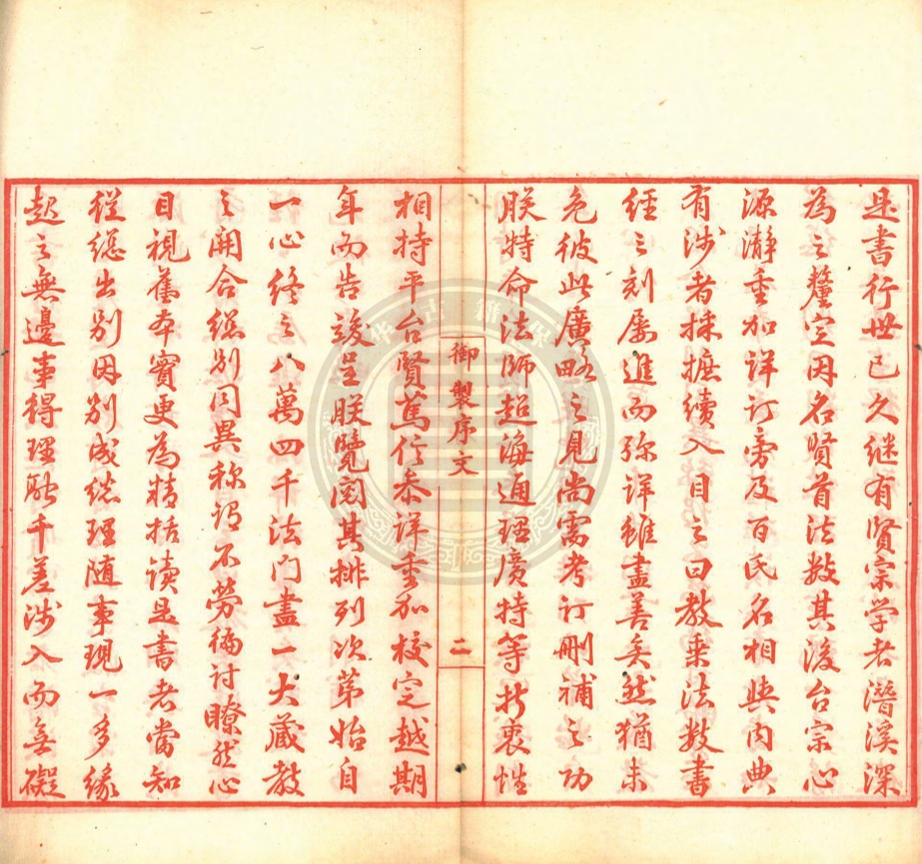 是書行世已久継有賢宗學者潛溪深
為之釐定因名賢首法数其後台宗心
源瀞重加詳订旁及百氏名相與内典
有涉者採摭續入目之曰教乗法数書
經三刻屡進而弥详雖盡善矣然猶未
免彼此廣略之見尚需考订刪補之功
朕特命法師超海通理廣持等折衷性
御製序文
二
相持平台賢萬行叅详重加校定越期
年而告竣呈朕覽閲其排列次第始自
一心终之八萬四千法门盡一大藏教
之開合總别同異称谓不勞徧讨瞭然心
目視舊本實更為精括读是書者當知
從總出别因别成總理随事現一多緣
起之無邊事得理融千差涉入而無礙